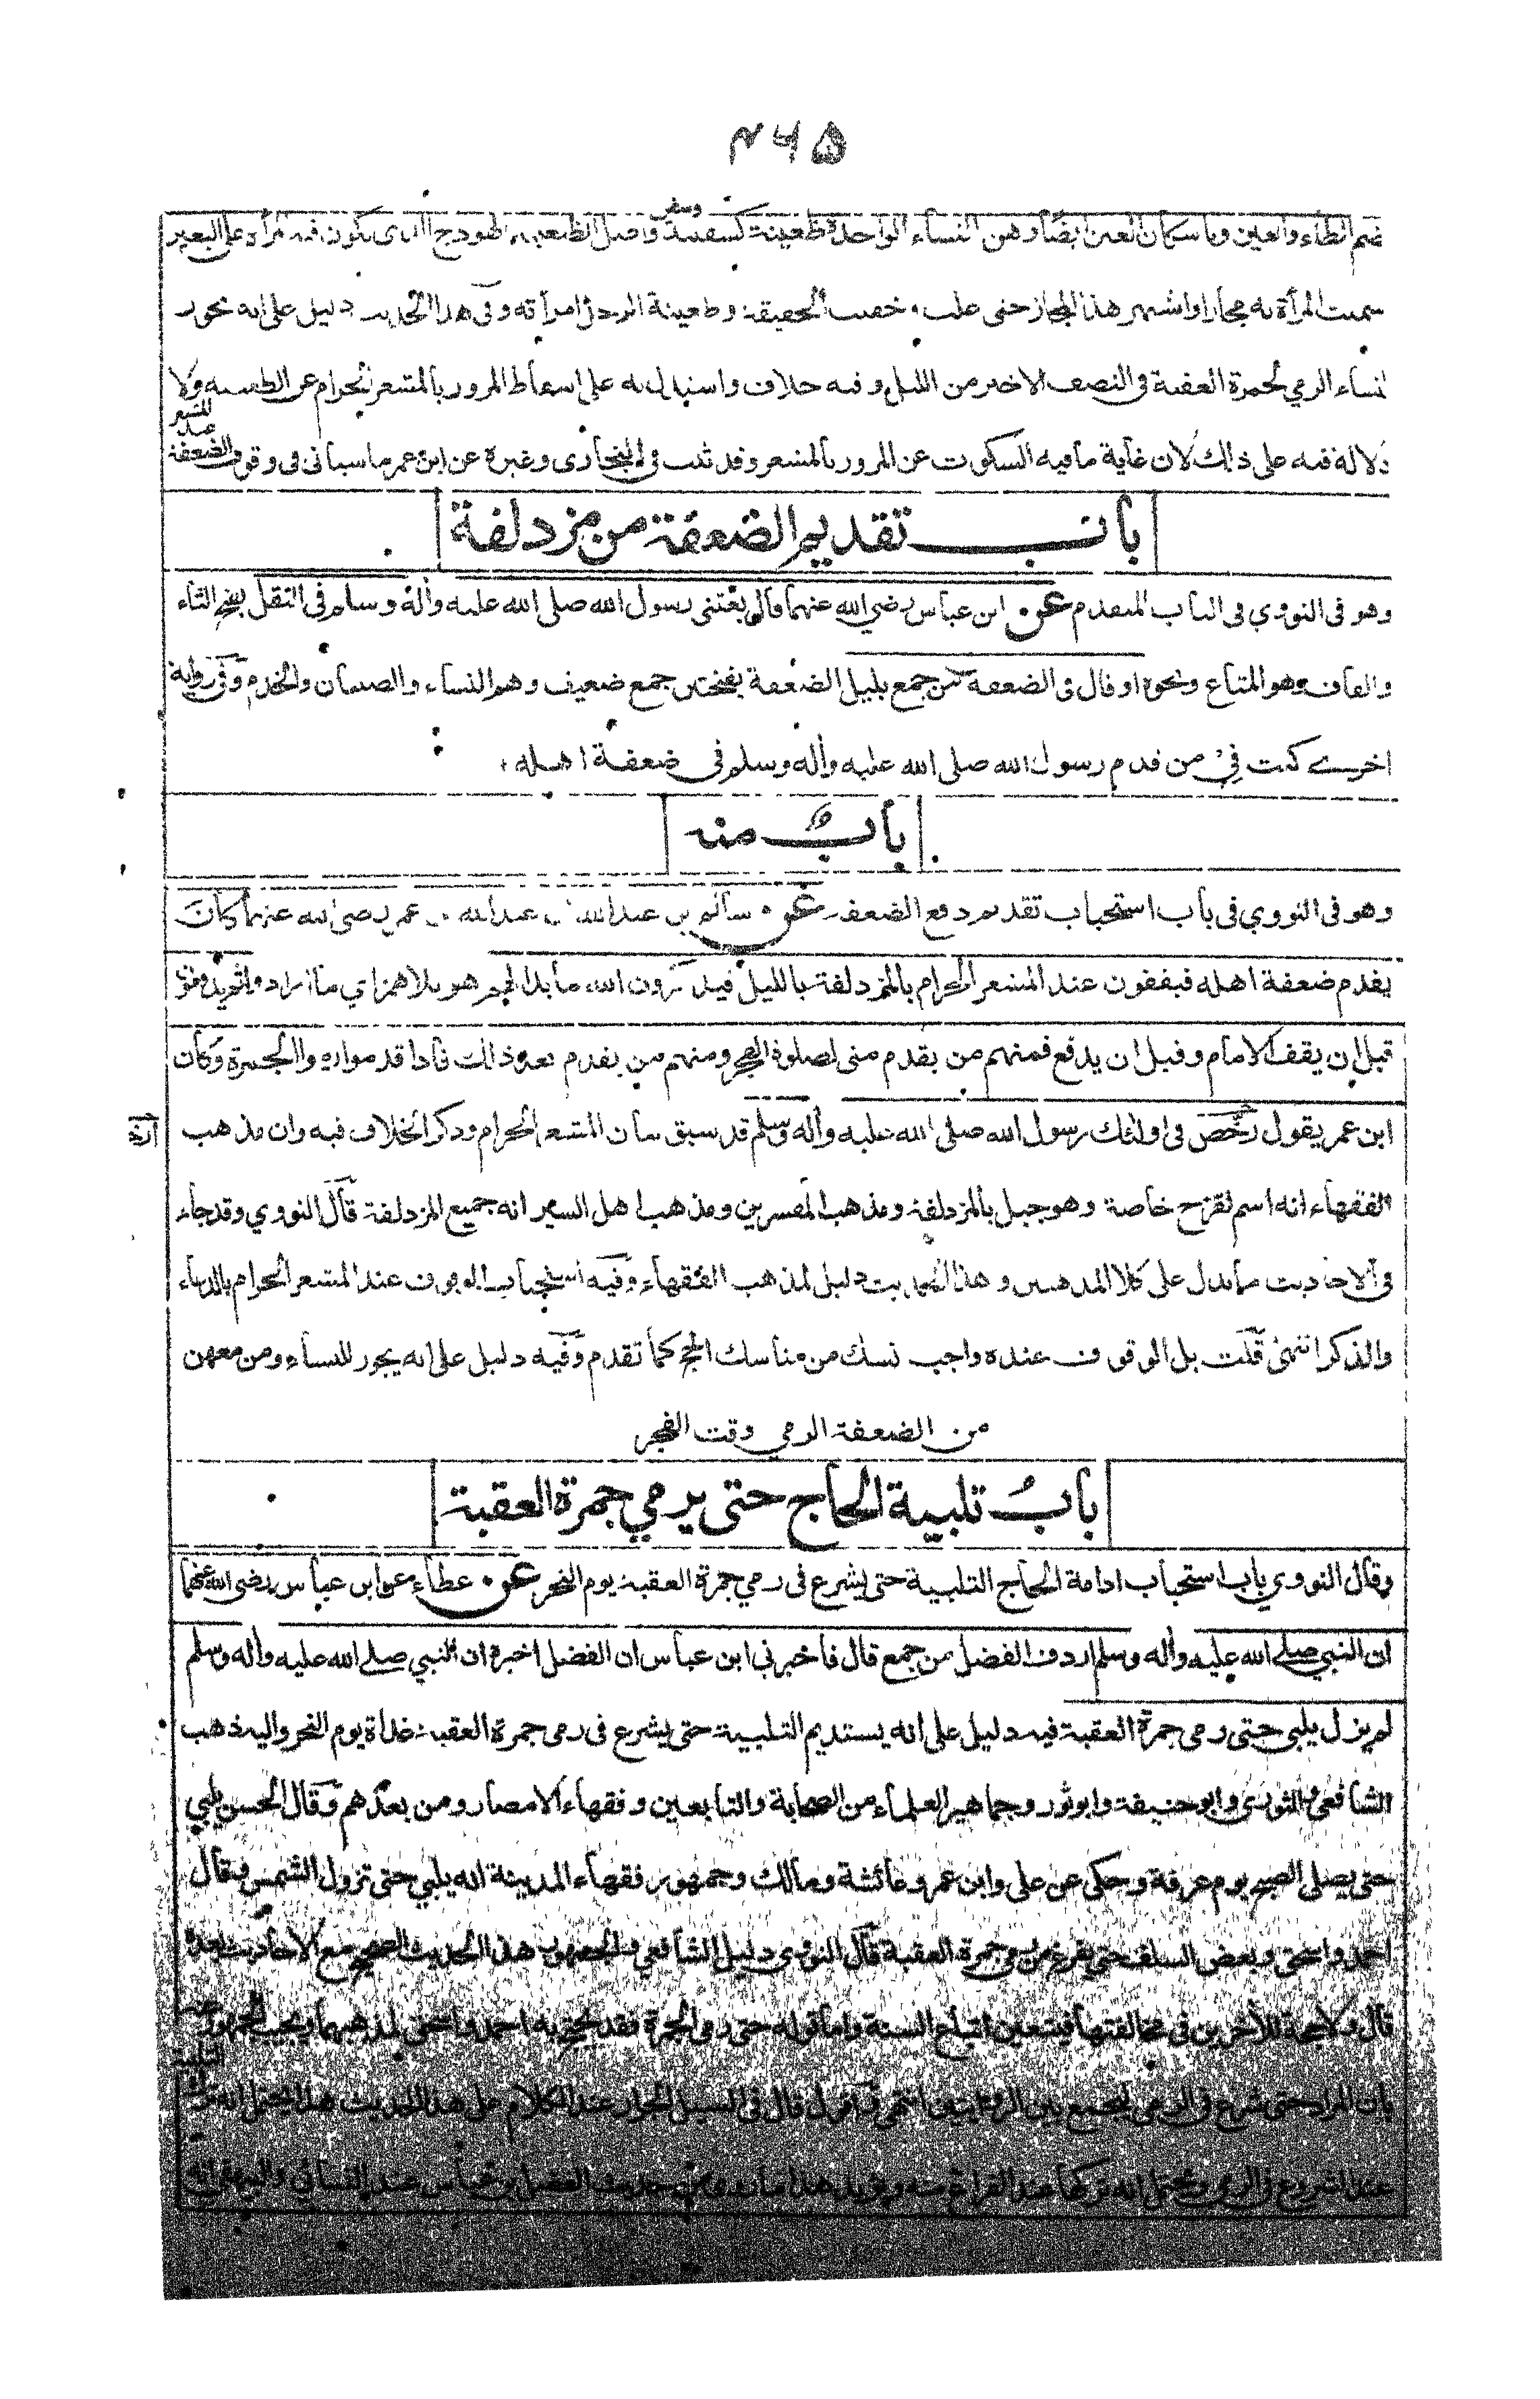 ۴۶۵
بضم الظاء والعين وباسكان العين ايضا وهن النساء الواحدة ظعينة كسفينة وسفن واصل الظعينة الهودج الذي تكون فيه المرأة على البعير
سميت المرأة به مجازا واشتهر هذا المجاز حتى غلب وخفيت الحقيقة وظعينة الرجل امرأته وفي هذا الحديث دليل على انه يجوز
لنساء الرمي لجمرة العقبة في النصف الاخير من الليل وفيه خلاف واستدل به على اسقاط المرور بالمشعر الحرام عن الظعينة ولا
دلالة فيه على ذلك لان غاية ما فيه السكوت عن المرور بالمشعر وقد ثبت في البخاري وغيره عن ابن عمر ما سيأتي في وقوف الضعفة
عند المشعر
باب تقديم الضعفة من مزدلفة
وهو في النووي في الباب المتقدم عن ابن عباس رضي الله عنهما قال بعثني رسول الله صلى الله عليه وأله وسلم في الثقل بفتح الثاء
والقاف وهو المتاع ونحوه او قال في الضعفة من جمع بليل الضعفة بفتحتين جمع ضعيف وهم النساء والصبيان والخدم وفي رواية
اخرى كنت في من قدم رسول الله صلى الله عليه وأله وسلم في ضعفة اهله
باب منه
وهو في النووي في باب استحباب تقديم دفع الضعفة عن سالم بن عبد الله ان عبد الله بن عمر رضي الله عنهما كان
يقدم ضعفة اهله فيقفون عند المشعر الحرام بالمزدلفة بالليل فيذكرون الله ما بدا لهم هو بلا همز اي ما ارادوا ثم يدفعون
قبل ان يقف الامام وقبل ان يدفع فمنهم من يقدم منى لصلوة الفجر ومنهم من يقدم بعد ذلك فاذا قدموا رموا الجمرة وكان
ابن عمر يقول رخص في اولئك رسول الله صلى الله عليه وأله وسلم قد سبق بيان المشعر الحرام وذكر الخلاف فيه وان مذهب
الفقهاء انه اسم لقزح خاصة وهو جبل بالمزدلفة ومذهب المفسرين ومذهب اهل السير انه جميع المزدلفة قال النووي وقد جاء
في الاحاديث ما يدل على كلا المذهبين وهذا الحديث دليل لمذهب الفقهاء وفيه استحباب الوقوف عند المشعر الحرام بالدعاء
والذكر انتهى قلت بل الوقوف عنده واجب نسك من مناسك الحج كما تقدم وفيه دليل على انه يجوز للنساء ومن معهن
من الضعفة الرمي وقت الفجر
باب تلبية الحاج حتى يرمي جمرة العقبة
وقال النووي باب استحباب ادامة الحاج التلبية حتى يشرع في رمي جمرة العقبة يوم النحر عن عطاء عن ابن عباس رضي الله عنهما
ان النبي صلى الله عليه وأله وسلم اردف الفضل من جمع قال فأخبرني ابن عباس ان الفضل اخبره ان النبي صلى الله عليه وأله وسلم
لم يزل يلبي حتى رمى جمرة العقبة فيه دليل على انه يستديم التلبية حتى يشرع في رمي جمرة العقبة غداة يوم النحر واليه ذهب
الشافعي والثوري وابو حنيفة وابو ثور وجماهير العلماء من الصحابة والتابعين وفقهاء الامصار ومن بعدهم وقال الحسن يلبي
حتى يصلي الصبح يوم عرفة وحكي عن علي وابن عمر وعائشة ومالك وجمهور فقهاء المدينة انه يلبي حتى تزول الشمس وقال
احمد واسحق وبعض السلف حتى يفرغ من رمي جمرة العقبة قال النووي دليل الشافعي والجمهور هذا الحديث الصحيح مع الاحاديث بعده
قال ولا حجة للأخرين في مخالفتها فيتعين اتباع السنة واما قوله حتى رمى الجمرة فقد يحتج به احمد واسحق لمذهبهما ويجيب الجمهور عنه
بان المراد حتى شرع في الرمي ليجمع بين الروايتين انتهى واقول قال في السيل الجرار عند الكلام على هذا الحديث هذا يحتمل انه ترك التلبية
عند الشروع في الرمي ويحتمل انه تركها عند الفراغ منه ويؤيد هذا ما روي من حديث الفضل بن عباس عند النسائي والبيهقي انه